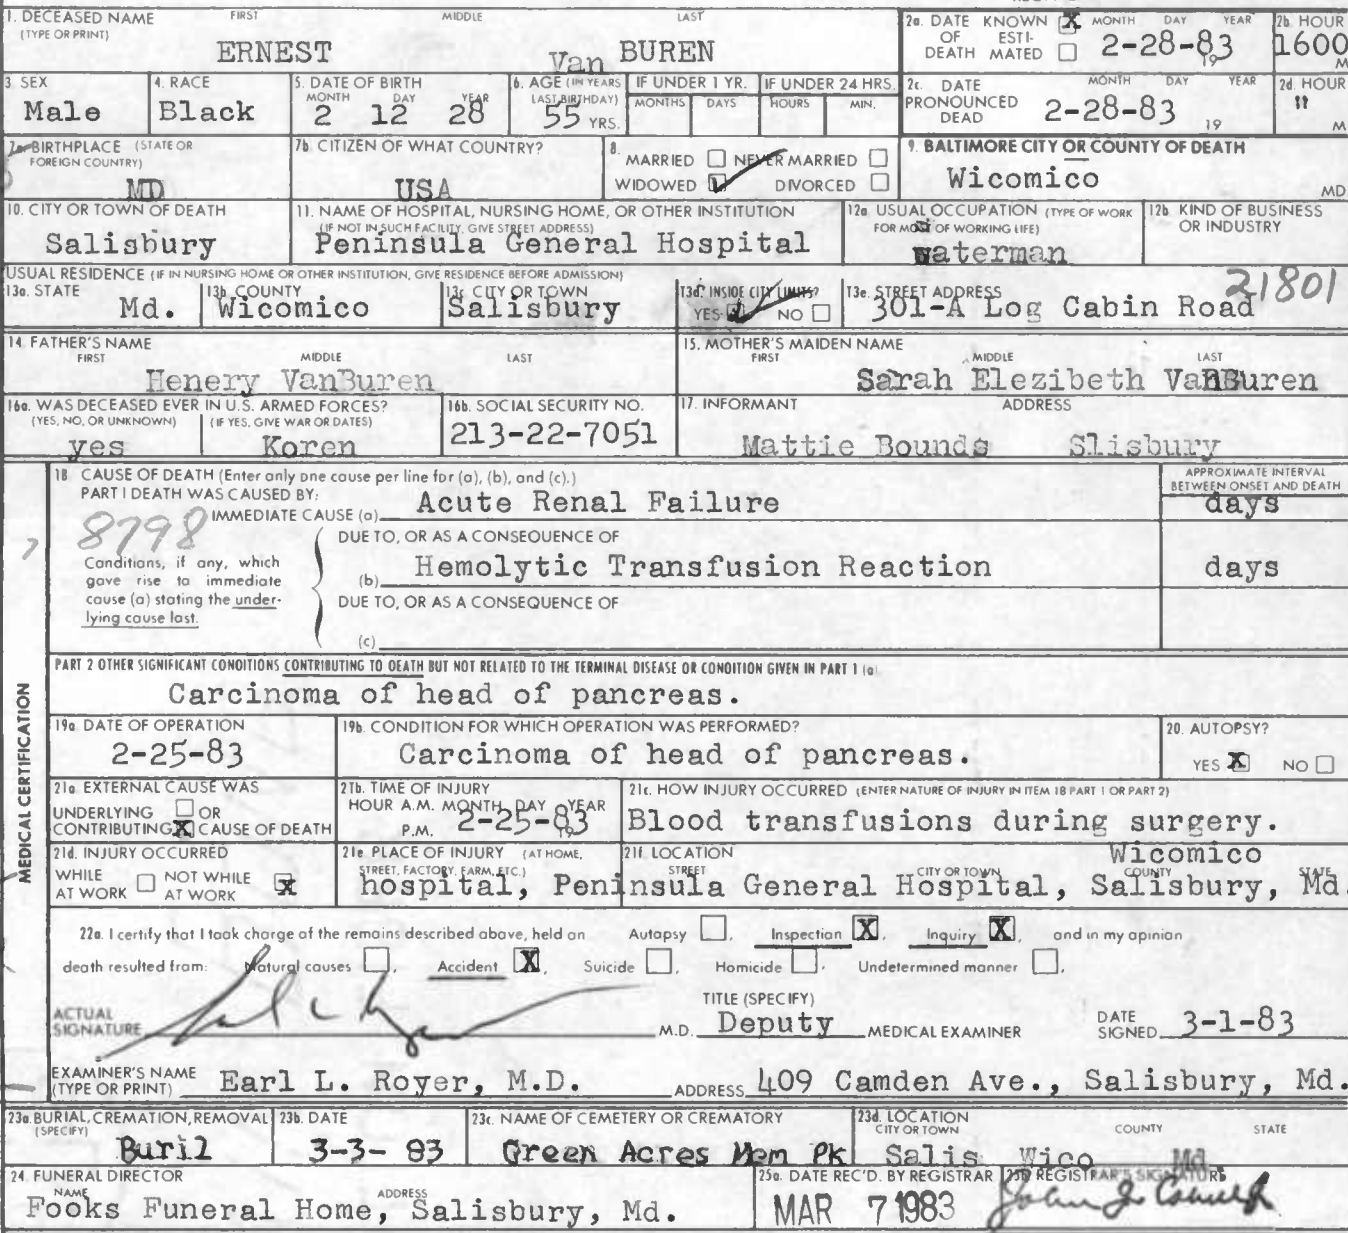 1. DECEASED NAME FIRST MIDDLE LAST
(TYPE OR PRINT)
ERNEST Van BUREN
2a. DATE KNOWN X MONTH DAY YEAR
OF ESTI-
DEATH MATED 2-28-83 19
2b. HOUR
1600
M
3. SEX
Male
4. RACE
Black
5. DATE OF BIRTH
MONTH DAY YEAR
2 12 28
6. AGE (IN YEARS
LAST BIRTHDAY)
55 YRS.
IF UNDER 1 YR.
MONTHS DAYS
IF UNDER 24 HRS.
HOURS MIN.
2c. DATE MONTH DAY YEAR
PRONOUNCED
DEAD 2-28-83 19
2d. HOUR
"
M
7a. BIRTHPLACE (STATE OR
FOREIGN COUNTRY)
MD
7b. CITIZEN OF WHAT COUNTRY?
USA
8.
MARRIED NEVER MARRIED
WIDOWED ✓ DIVORCED
9. BALTIMORE CITY OR COUNTY OF DEATH
Wicomico
MD
10. CITY OR TOWN OF DEATH
Salisbury
11. NAME OF HOSPITAL, NURSING HOME, OR OTHER INSTITUTION
(IF NOT IN SUCH FACILITY, GIVE STREET ADDRESS)
Peninsula General Hospital
12a. USUAL OCCUPATION (TYPE OF WORK
FOR MOST OF WORKING LIFE)
waterman
12b. KIND OF BUSINESS
OR INDUSTRY
USUAL RESIDENCE (IF IN NURSING HOME OR OTHER INSTITUTION, GIVE RESIDENCE BEFORE ADMISSION)
13a. STATE
Md.
13b. COUNTY
Wicomico
13c. CITY OR TOWN
Salisbury
13d. INSIDE CITY LIMITS?
YES ✓ NO
13e. STREET ADDRESS 21801
301-A Log Cabin Road
14. FATHER'S NAME
FIRST MIDDLE LAST
Henery VanBuren
15. MOTHER'S MAIDEN NAME
FIRST MIDDLE LAST
Sarah Elezibeth VanBuren
16a. WAS DECEASED EVER IN U.S. ARMED FORCES?
(YES, NO, OR UNKNOWN) (IF YES, GIVE WAR OR DATES)
yes Koren
16b. SOCIAL SECURITY NO.
213-22-7051
17. INFORMANT ADDRESS
Mattie Bounds Slisbury
MEDICAL CERTIFICATION
18. CAUSE OF DEATH (Enter only one cause per line for (a), (b), and (c).)
PART I DEATH WAS CAUSED BY:
APPROXIMATE INTERVAL
BETWEEN ONSET AND DEATH
IMMEDIATE CAUSE (a) Acute Renal Failure days
8798
DUE TO, OR AS A CONSEQUENCE OF
Conditions, if any, which
gave rise to immediate
cause (a) stating the under-
lying cause last.
(b) Hemolytic Transfusion Reaction days
DUE TO, OR AS A CONSEQUENCE OF
(c)
PART 2 OTHER SIGNIFICANT CONDITIONS CONTRIBUTING TO DEATH BUT NOT RELATED TO THE TERMINAL DISEASE OR CONDITION GIVEN IN PART 1 (a)
Carcinoma of head of pancreas.
19a. DATE OF OPERATION
2-25-83
19b. CONDITION FOR WHICH OPERATION WAS PERFORMED?
Carcinoma of head of pancreas.
20. AUTOPSY?
YES X NO
21a. EXTERNAL CAUSE WAS
UNDERLYING OR
CONTRIBUTING X CAUSE OF DEATH
21b. TIME OF INJURY
HOUR A.M. MONTH DAY YEAR
P.M. 2-25-83 19
21c. HOW INJURY OCCURRED (ENTER NATURE OF INJURY IN ITEM 18 PART 1 OR PART 2)
Blood transfusions during surgery.
21d. INJURY OCCURRED
WHILE NOT WHILE
AT WORK AT WORK X
21e. PLACE OF INJURY (AT HOME,
STREET, FACTORY, FARM, ETC.)
21f. LOCATION Wicomico
STREET CITY OR TOWN COUNTY STATE
hospital, Peninsula General Hospital, Salisbury, Md.
22a. I certify that I took charge of the remains described above, held an Autopsy , Inspection X, Inquiry X, and in my opinion
death resulted from: Natural causes , Accident X, Suicide , Homicide , Undetermined manner .
ACTUAL
SIGNATURE
M.D.
TITLE (SPECIFY)
Deputy MEDICAL EXAMINER
DATE
SIGNED 3-1-83
EXAMINER'S NAME
(TYPE OR PRINT) Earl L. Royer, M.D. ADDRESS 409 Camden Ave., Salisbury, Md.
23a. BURIAL, CREMATION, REMOVAL
(SPECIFY)
Buril
23b. DATE
3-3-83
23c. NAME OF CEMETERY OR CREMATORY
Green Acres Mem Pk
23d. LOCATION
CITY OR TOWN COUNTY STATE
Salis Wico Md
24. FUNERAL DIRECTOR
NAME ADDRESS
Fooks Funeral Home, Salisbury, Md.
25a. DATE REC'D. BY REGISTRAR
MAR 7 1983
25b. REGISTRAR'S SIGNATURE